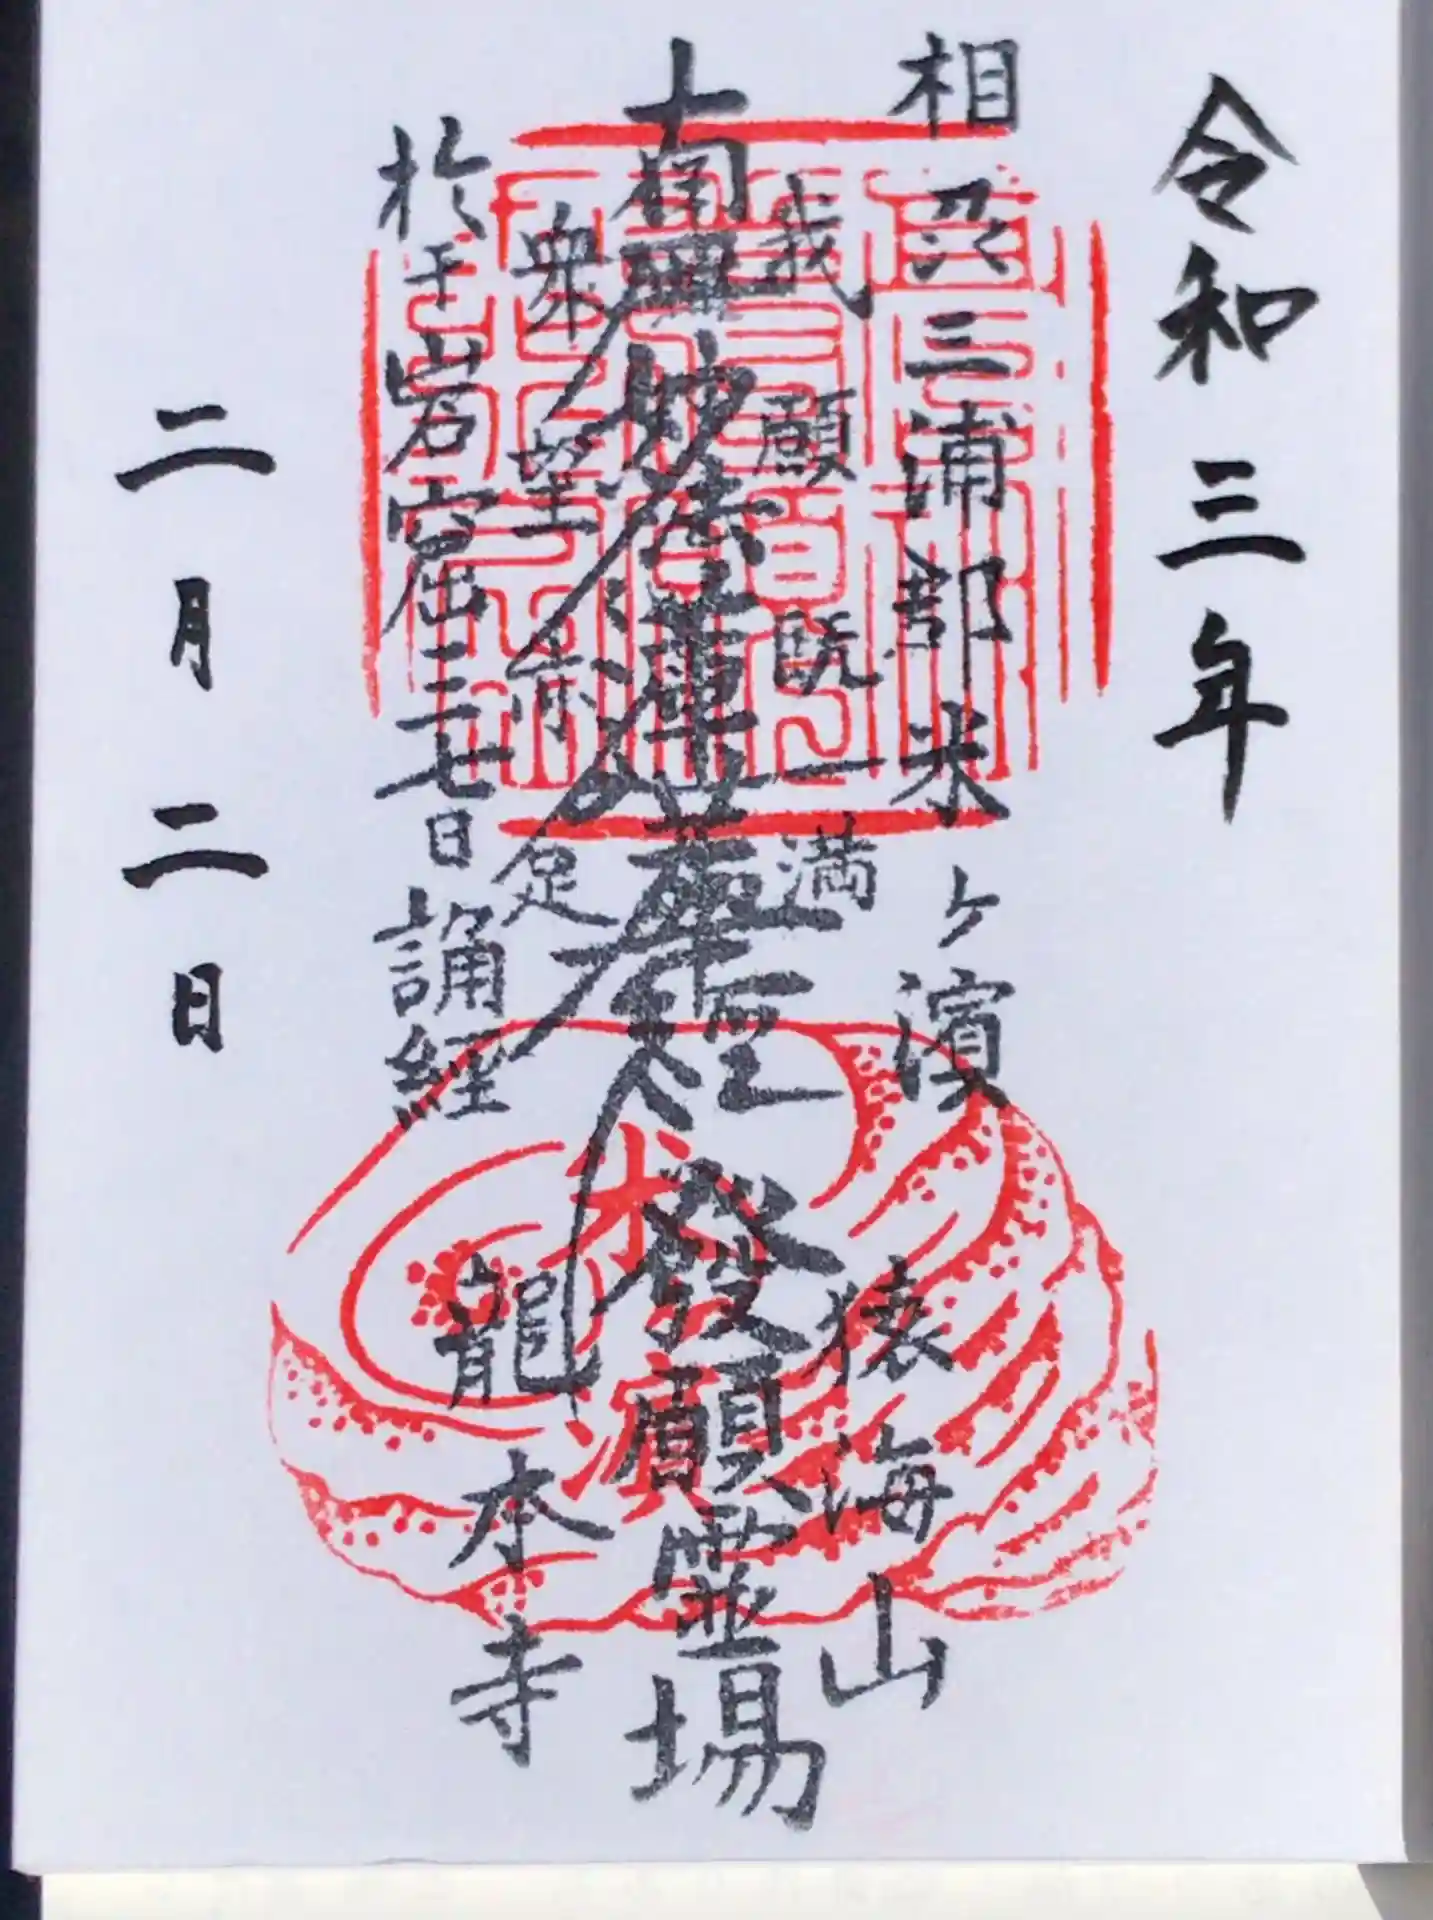 令和三年
相州三浦郡米ヶ濱
我願既満
南無妙法蓮華経
發願霊場
衆望亦足
於干岩窟三七日誦経
猿海山
龍本寺
二月二日
米濱